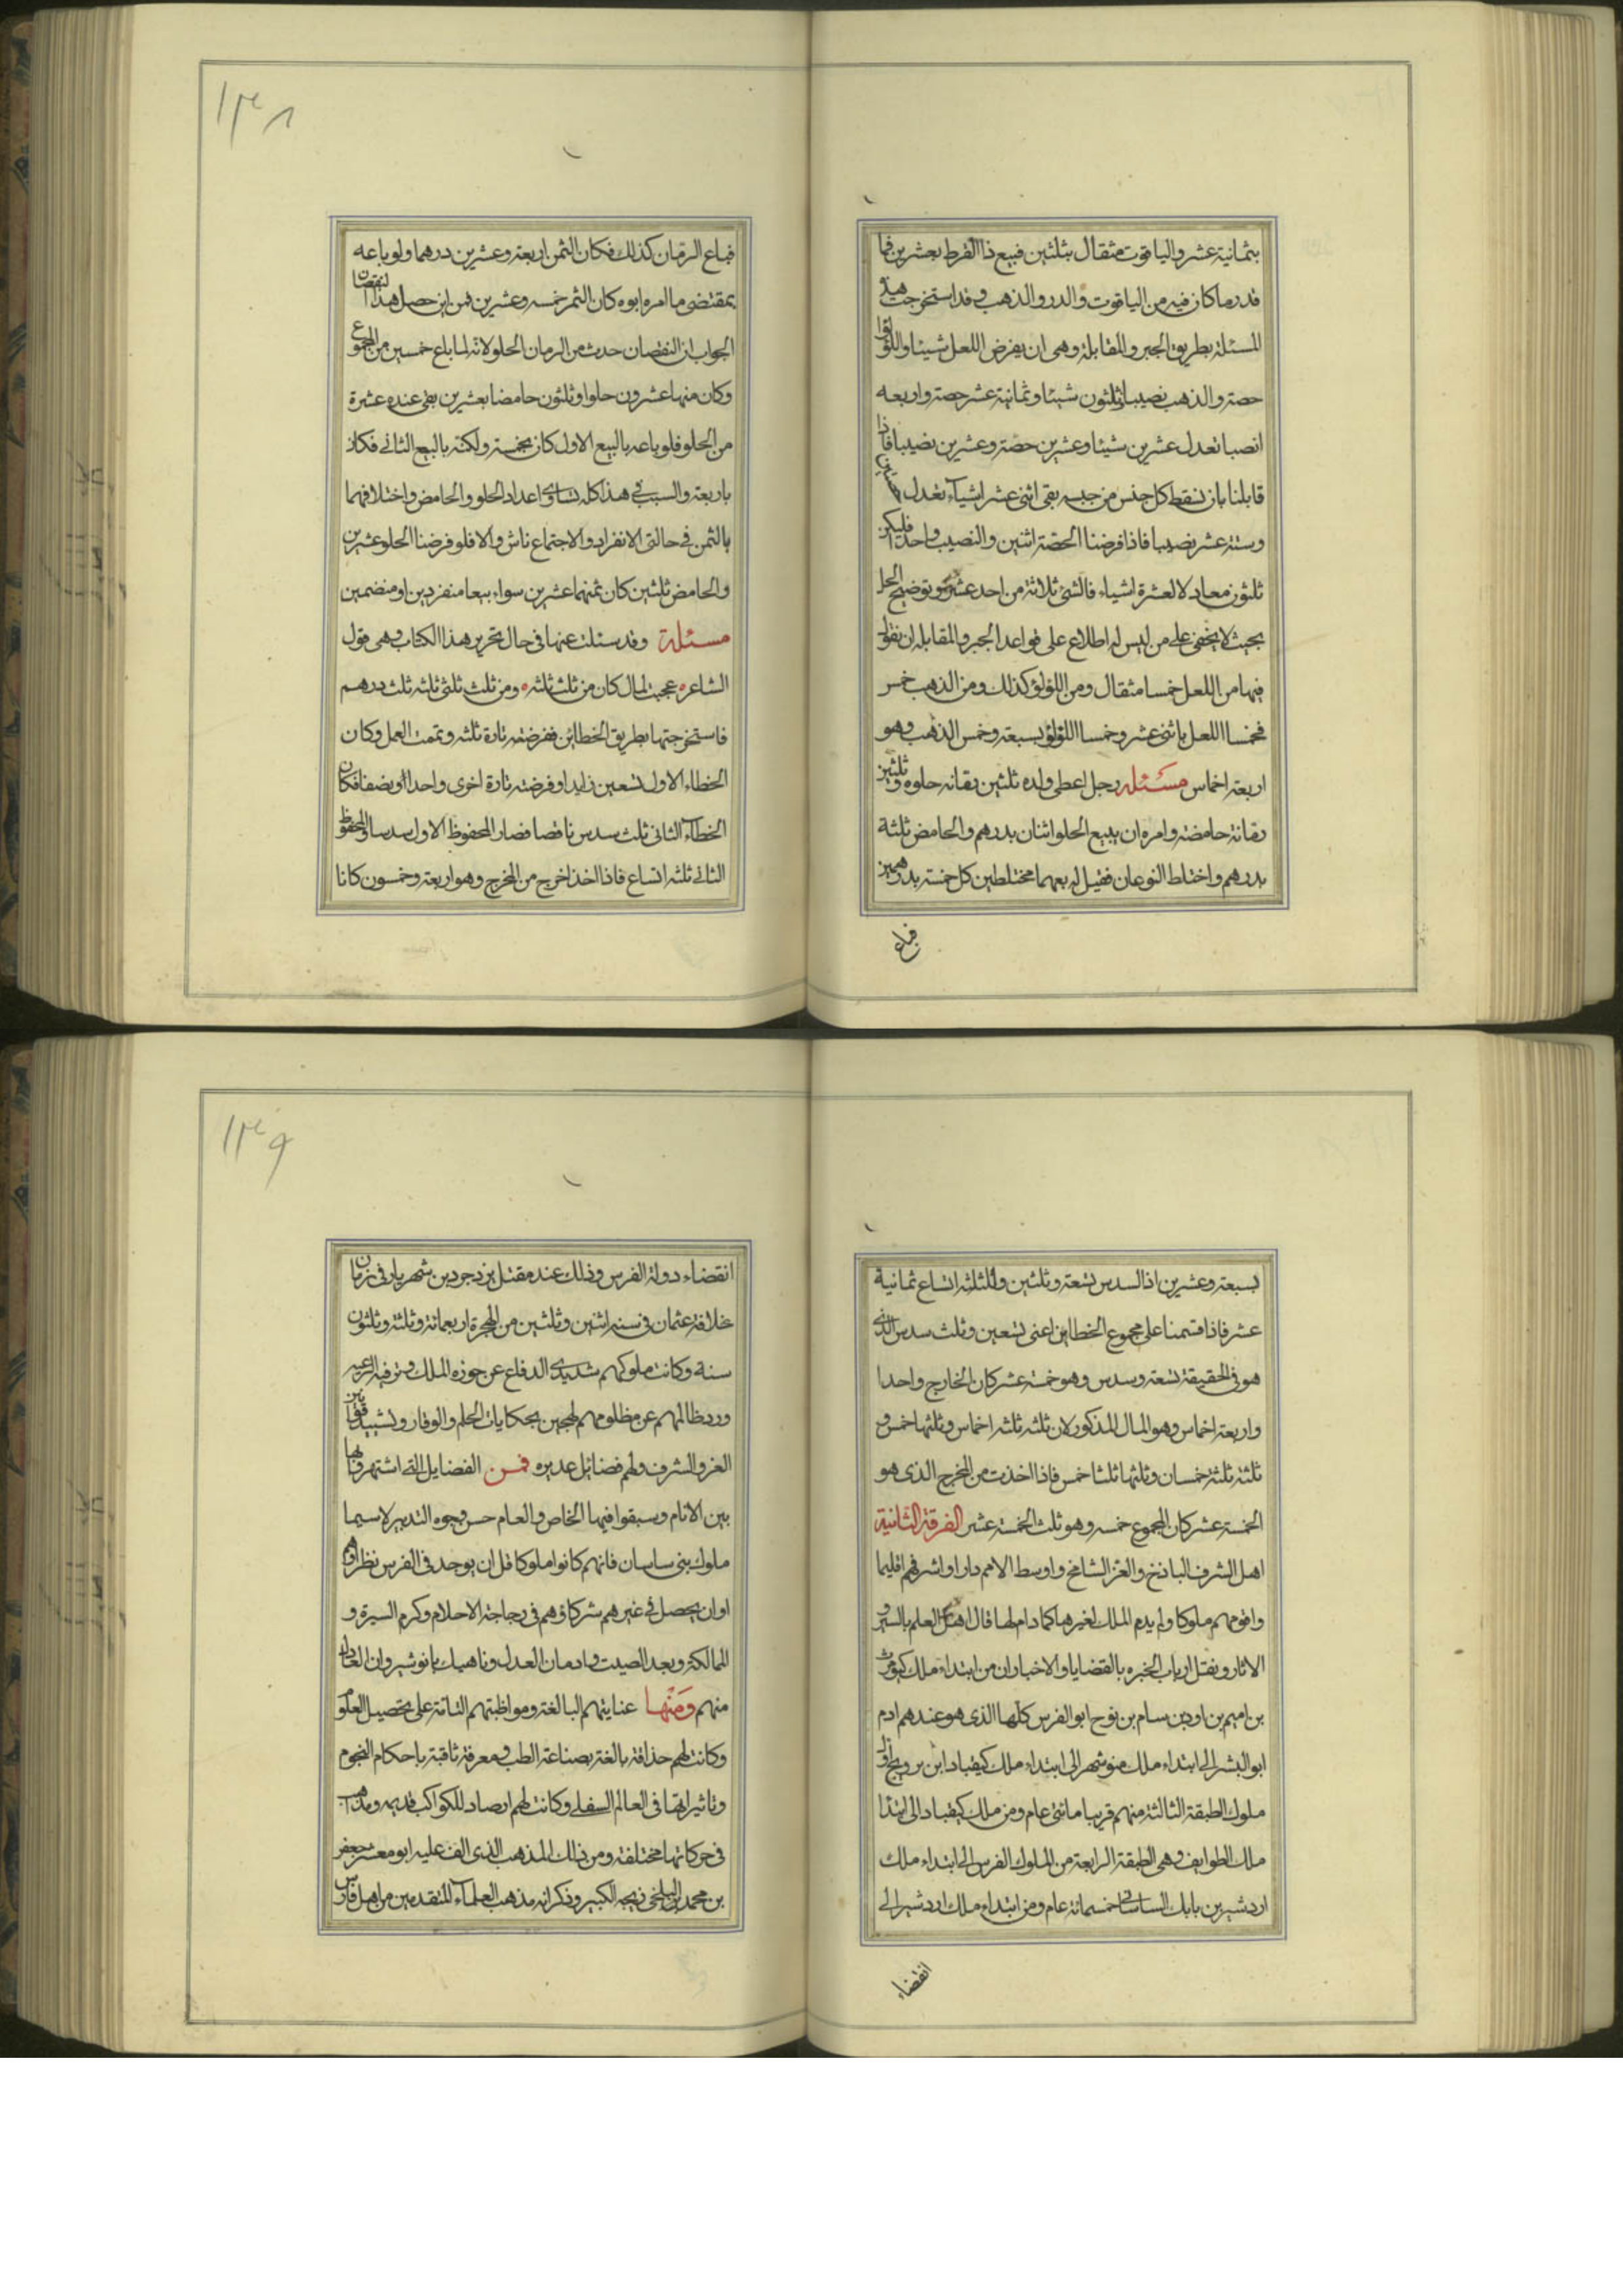 بثمانية عشر والياقوت مثقال بثلثين فبيع ذا القرط بعشرين فما
قدر ما كان فيه من الياقوت والدر والذهب وقد استخرجت هذه
المسئلة بطريق الجبر والمقابلة وهى ان يفرض اللعل شيئا واللؤلؤ
حصة والذهب نصيبا ثلثون شيئا وثمانية عشر حصة واربعه
انصبا تعدل عشرين شيئا وعشرين حصة وعشرين نصيبا فاذا
قابلنا بان نسقط كل جنس من جنسه بقى اثنى عشر اشياء تعدل حصتين
وستة عشر نصيبا فاذا فرضنا الحصة اثنين والنصيب واحدا فليكن
ثلثون معادلا لعشرة اشياء فالشئ ثلاثة من احد عشر وتوضيح الحل
بحيث لا يخفى على من ليس له اطلاع على قواعد الجبر والمقابله ان نقول
فيها من اللعل خمسا مثقال ومن اللؤلؤ كذلك ومن الذهب خمس
فخمسا اللعل باثنى عشر وخمسا اللؤلؤ بسبعة وخمس الذهب وهو
اربعة اخماس مسئله رجل اعطى ولده ثلثين رمانه حلوه وثلثين
رمانة حامضة وامره ان يبيع الحلو اثنان بدرهم والحامض ثلثة
بدرهم واختلط النوعان فقيل له بعهما مختلطين كل خمسة بدرهمين
فباع
١٣٨
فباع الرمان كذلك فكان الثمن اربعة وعشرين درهما ولو باعه
بمقتضى ما امره ابوه كان الثمن خمسه وعشرين فمن اين حصل هذا النقصان
الجواب ان النقصان حدث من الرمان الحلو لانه لما باع خمسين من المجموع
وكان منها عشرون حلوا وثلثون حامضا بعشرين بقى عنده عشرة
من الحلو فلو باعه بالبيع الاول كان بخمسة ولكنه بالبيع الثانى فكان
باربعة والسبب فى هذا كله تساوى اعداد الحلو والحامض واختلافهما
بالثمن فى حالتى الانفراد والاجتماع ناش والا فلو فرضنا الحلو عشرين
والحامض ثلثين كان ثمنهما عشرين سواء بيعا منفردين او منضمين
مسئلة وقد سئلت عنها فى حال تحرير هذا الكتاب وهى قول
الشاعر عجبت لمال كان من ثلث ثلثه ومن ثلث ثلثى ثلثه ثلث درهم
فاستخرجتها بطريق الخطائن ففرضته تارة ثلثه وتممت العمل وكان
الخطاء الاول تسعين زايدا وفرضته تارة اخرى واحدا ونصفا فكان
الخطاء الثانى ثلث سدس ناقصا فصار المحفوظ الاول سدسا والمحفوظ
الثانى ثلثه اتساع فاذا اخذا خرج من المخرج وهو اربعة وخمسون كانا
بسبعة وعشرين اذ السدس تسعة وثلثين والثلثه اتساع ثمانية
عشر فاذا قسمنا على مجموع الخطاين اعنى تسعين وثلث سدس الذى
هو فى الحقيقة تسعة وسدس وهو خمسة عشر كان الخارج واحدا
واربعة اخماس وهو المال المذكور لان ثلثه ثلثه اخماس وثلثها خمس و
ثلثة ثلثة خمسان وثلثها ثلثا خمس فاذا اخذت من المخرج الذى هو
الخمسة عشر كان المجموع خمسه وهو ثلث الخمسة عشر الفرقة الثانية
اهل الشرف الباذخ والعز الشامخ واوسط الامم دارا واشرفهم اقليما
واقومهم ملوكا ولم يدم الملك لغيرهم كما دام لها قال اهل العلم بالسير و
الاثار ونقل ارباب الخبره بالقضايا والاخبار ان من ابتداء ملك كيومرث
بن اميم بن اود بن سام بن نوح ابو الفرس كلها الذى هو عندهم ادم
ابو البشر الى ابتداء ملك منوشهر الى ابتداء ملك كيقباد ابن بر ويج اول
ملوك الطبقة الثالثة منهم قريبا مائتى عام ومن ملك كيقباد الى ابتدا
ملك الطوايف وهى الطبقة الرابعة من الملوك الفرس الى ابتداء ملك
اردشير بن بابك الساسانى خمسمائة عام ومن ابتداء ملك اردشير الى
انقضاء
١٣٩
انقضاء دولة الفرس وذلك عند مقتل يزدجرد بن شهريار فى زمان
خلافة عثمان فى سنه اثنين وثلثين من الهجرة اربعمائة وثلثة وثلثون
سنة وكانت ملوكهم شديدى الدفاع عن حوزه الملك وترفيه الرعيه
ورد ظالمهم عن مظلومهم لهجين بحكايات الحلم والوقار وتشييد قوانين
العز والشرف ولهم فضائل عديده فمن الفضايل التى اشتهروا بها
بين الانام وسبقوا فيها الخاص والعام حسن وجوه التدبير لا سيما
ملوك بنى ساسان فانهم كانوا ملوكا قل ان يوجد فى الفرس نظراؤهم
او ان يحصل فى غيرهم شركاؤهم فى رجاجة الاحلام وكرم السيرة و
المملكة وبعد الصيت وادمان العدل وناهيك بانوشيروان العادل
منهم ومنها عنايتهم البالغة ومواظبتهم التامة على تحصيل العلوم
وكانت لهم حذاقة بالغة بصناعة الطب ومعرفة ثاقبة باحكام النجوم
وتاثيراتها فى العالم السفلى وكانت لهم ارصاد للكواكب قديمه ومذاهب
فى حركاتها مختلفة ومن ذلك المذهب الذى الف عليه ابو معشر جعفر
بن محمد البلخى زيجه الكبير وذكر انه مذهب العلماء المتقدمين من اهل فارس